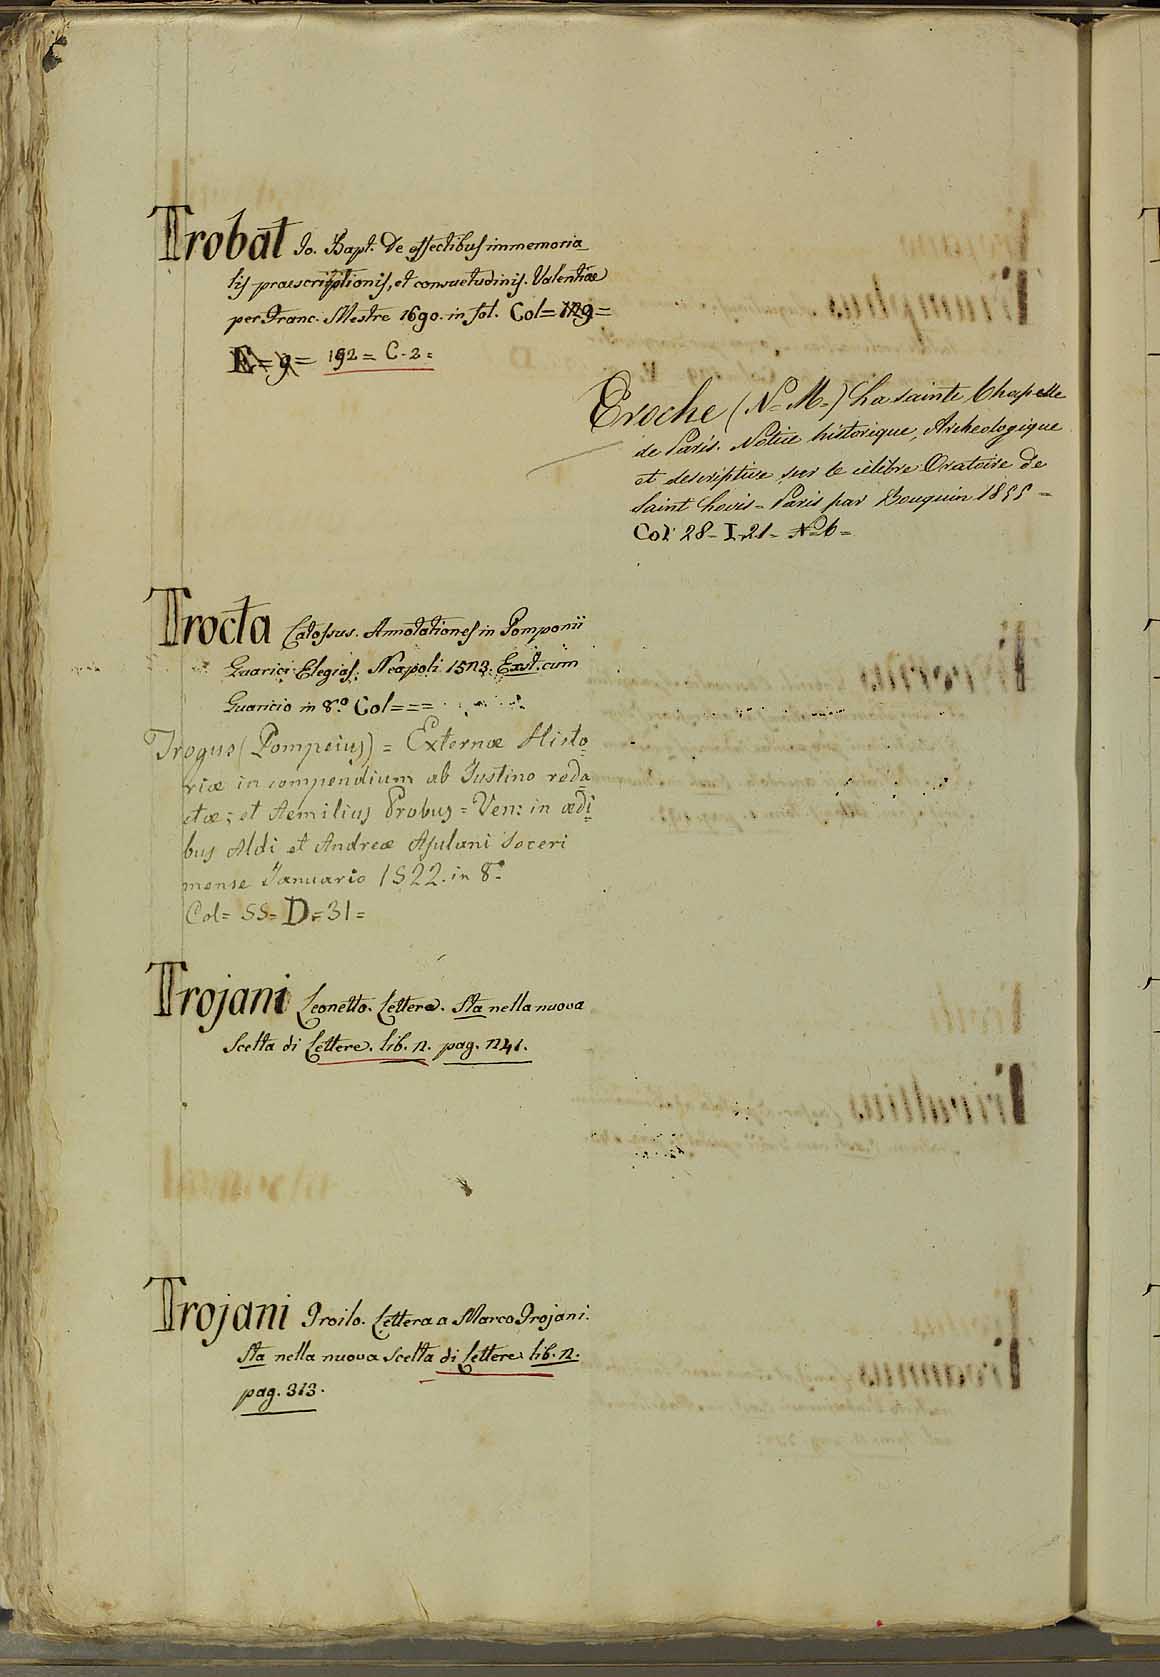 Trobat Jo. Bapt. De effectibus immemoria
lis praescriptionis, et consuetudinis. Valentiae
per Franc. Mestre 1690. in fol. Col= 129=
E= 9= 192= C-2=
Troche (N= M=) La sainte Chapelle
de Paris. Notice historique, Archeologique
et descriptive sur le célèbre Oratoire de
Saint Louis= Paris par Bouquin 1855=
Col: 28= I=21= N=6=
Trocta Calossus. Annotationes in Pomponii
Guarici Elegias. Neapoli 1573. Exst. cum
Guaricio in 8.º Col===
Trogus (Pompeius) = Externæ Histo
riæ in compendium ab Justino reda
ctæ; et Aemilius Probus= Ven: in ædi
bus Aldi et Andreæ Asulani Soceri
mense Januario 1522. in 8.º
Col= 55= D=31=
Trojani Leonetto. Lettera. Sta nella nuova
Scelta di Lettere. lib. 2. pag. 241.
Trojani Troilo. Lettera a Marco Trojani.
Sta nella nuova Scelta di Lettere lib. 2.
pag. 313.